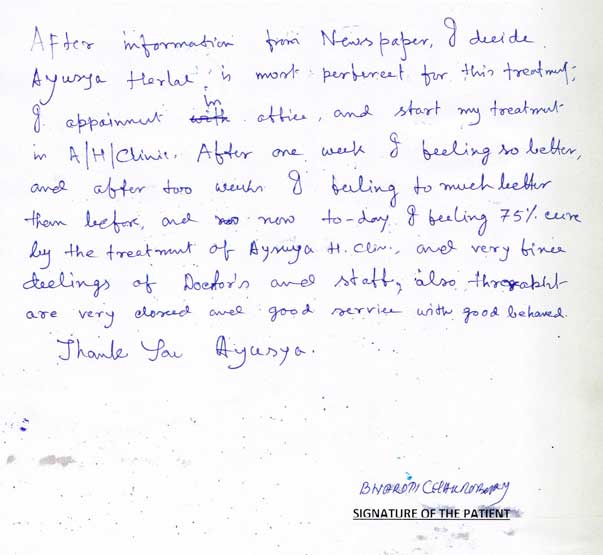 After information from Newspaper, I decide
Ayusya Herbal, is most perbercet for this treatmut,
I appainmut in office, and start my treatmut
in A/H/Clinic. After one week I feeling so better,
and after two weeks I feeling to much better
them befor, and now to-day I feeling 75% cure
by the treatmut of Ayusya H. Clin., and very fine
deelings of Doctor's and staff, also
are very closed and good service with good behaved.
Thank You Ayusya.
SIGNATURE OF THE PATIENT